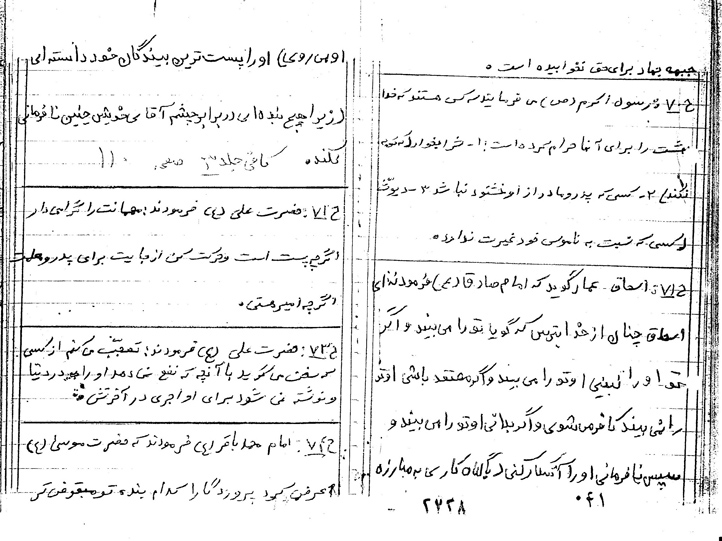 جبهه جهاد برای حق نخوابیده است .
ح ۷۰: رسول اکرم (ص) می فرمایند سه کس هستند که خدا
بهشت را برای آنها حرام کرده است: ۱- شرابخوار (که توبه
نکند) ۲- کسی که پدر و مادر از او خشنود نباشد ۳- دیوث
(کسی که نسبت به ناموس خود غیرت ندارد.
ح ۷۱: اسحاق - عمار گوید که امام صادق (ع) فرمود: ای
اسحاق چنان از خدا بترس که گویا تو را می بیند و اگر
تو او را نبینی او تو را می بیند و اگر معتقد باشی او تو
را نمی بیند کافر می شوی و اگر بدانی او تو را می بیند و
سپس نافرمانی او را آشکار کنی (با گناه کاری به مبارزه
۰۴۱
۲۷۲۸
او را پست ترین بینندگان خود دانسته ای
(زیرا هیچ بنده ای در برابر چشم آقای خویش چنین نافرمانی
نکند. کافی جلد ۳ صفحه ۱۱۰
ح ۷۲: حضرت علی (ع) فرمودند: مهمانت را گرامی دار
اگرچه پست است و حرکت کن از جایت برای پدر و معلمت
اگرچه امیر هستی.
ح ۷۳: حضرت علی (ع) فرمودند: تعجب می کنم از کسی
که سخن می گوید با آنچه که نفع نمی دهد او را در دنیا
و نوشته نمی شود برای او اجری در آخرتش
ح ۷۴: امام محمد باقر (ع) فرمودند که حضرت موسی (ع)
عرض کرد پروردگارا کدام بنده تو مبغوض تر